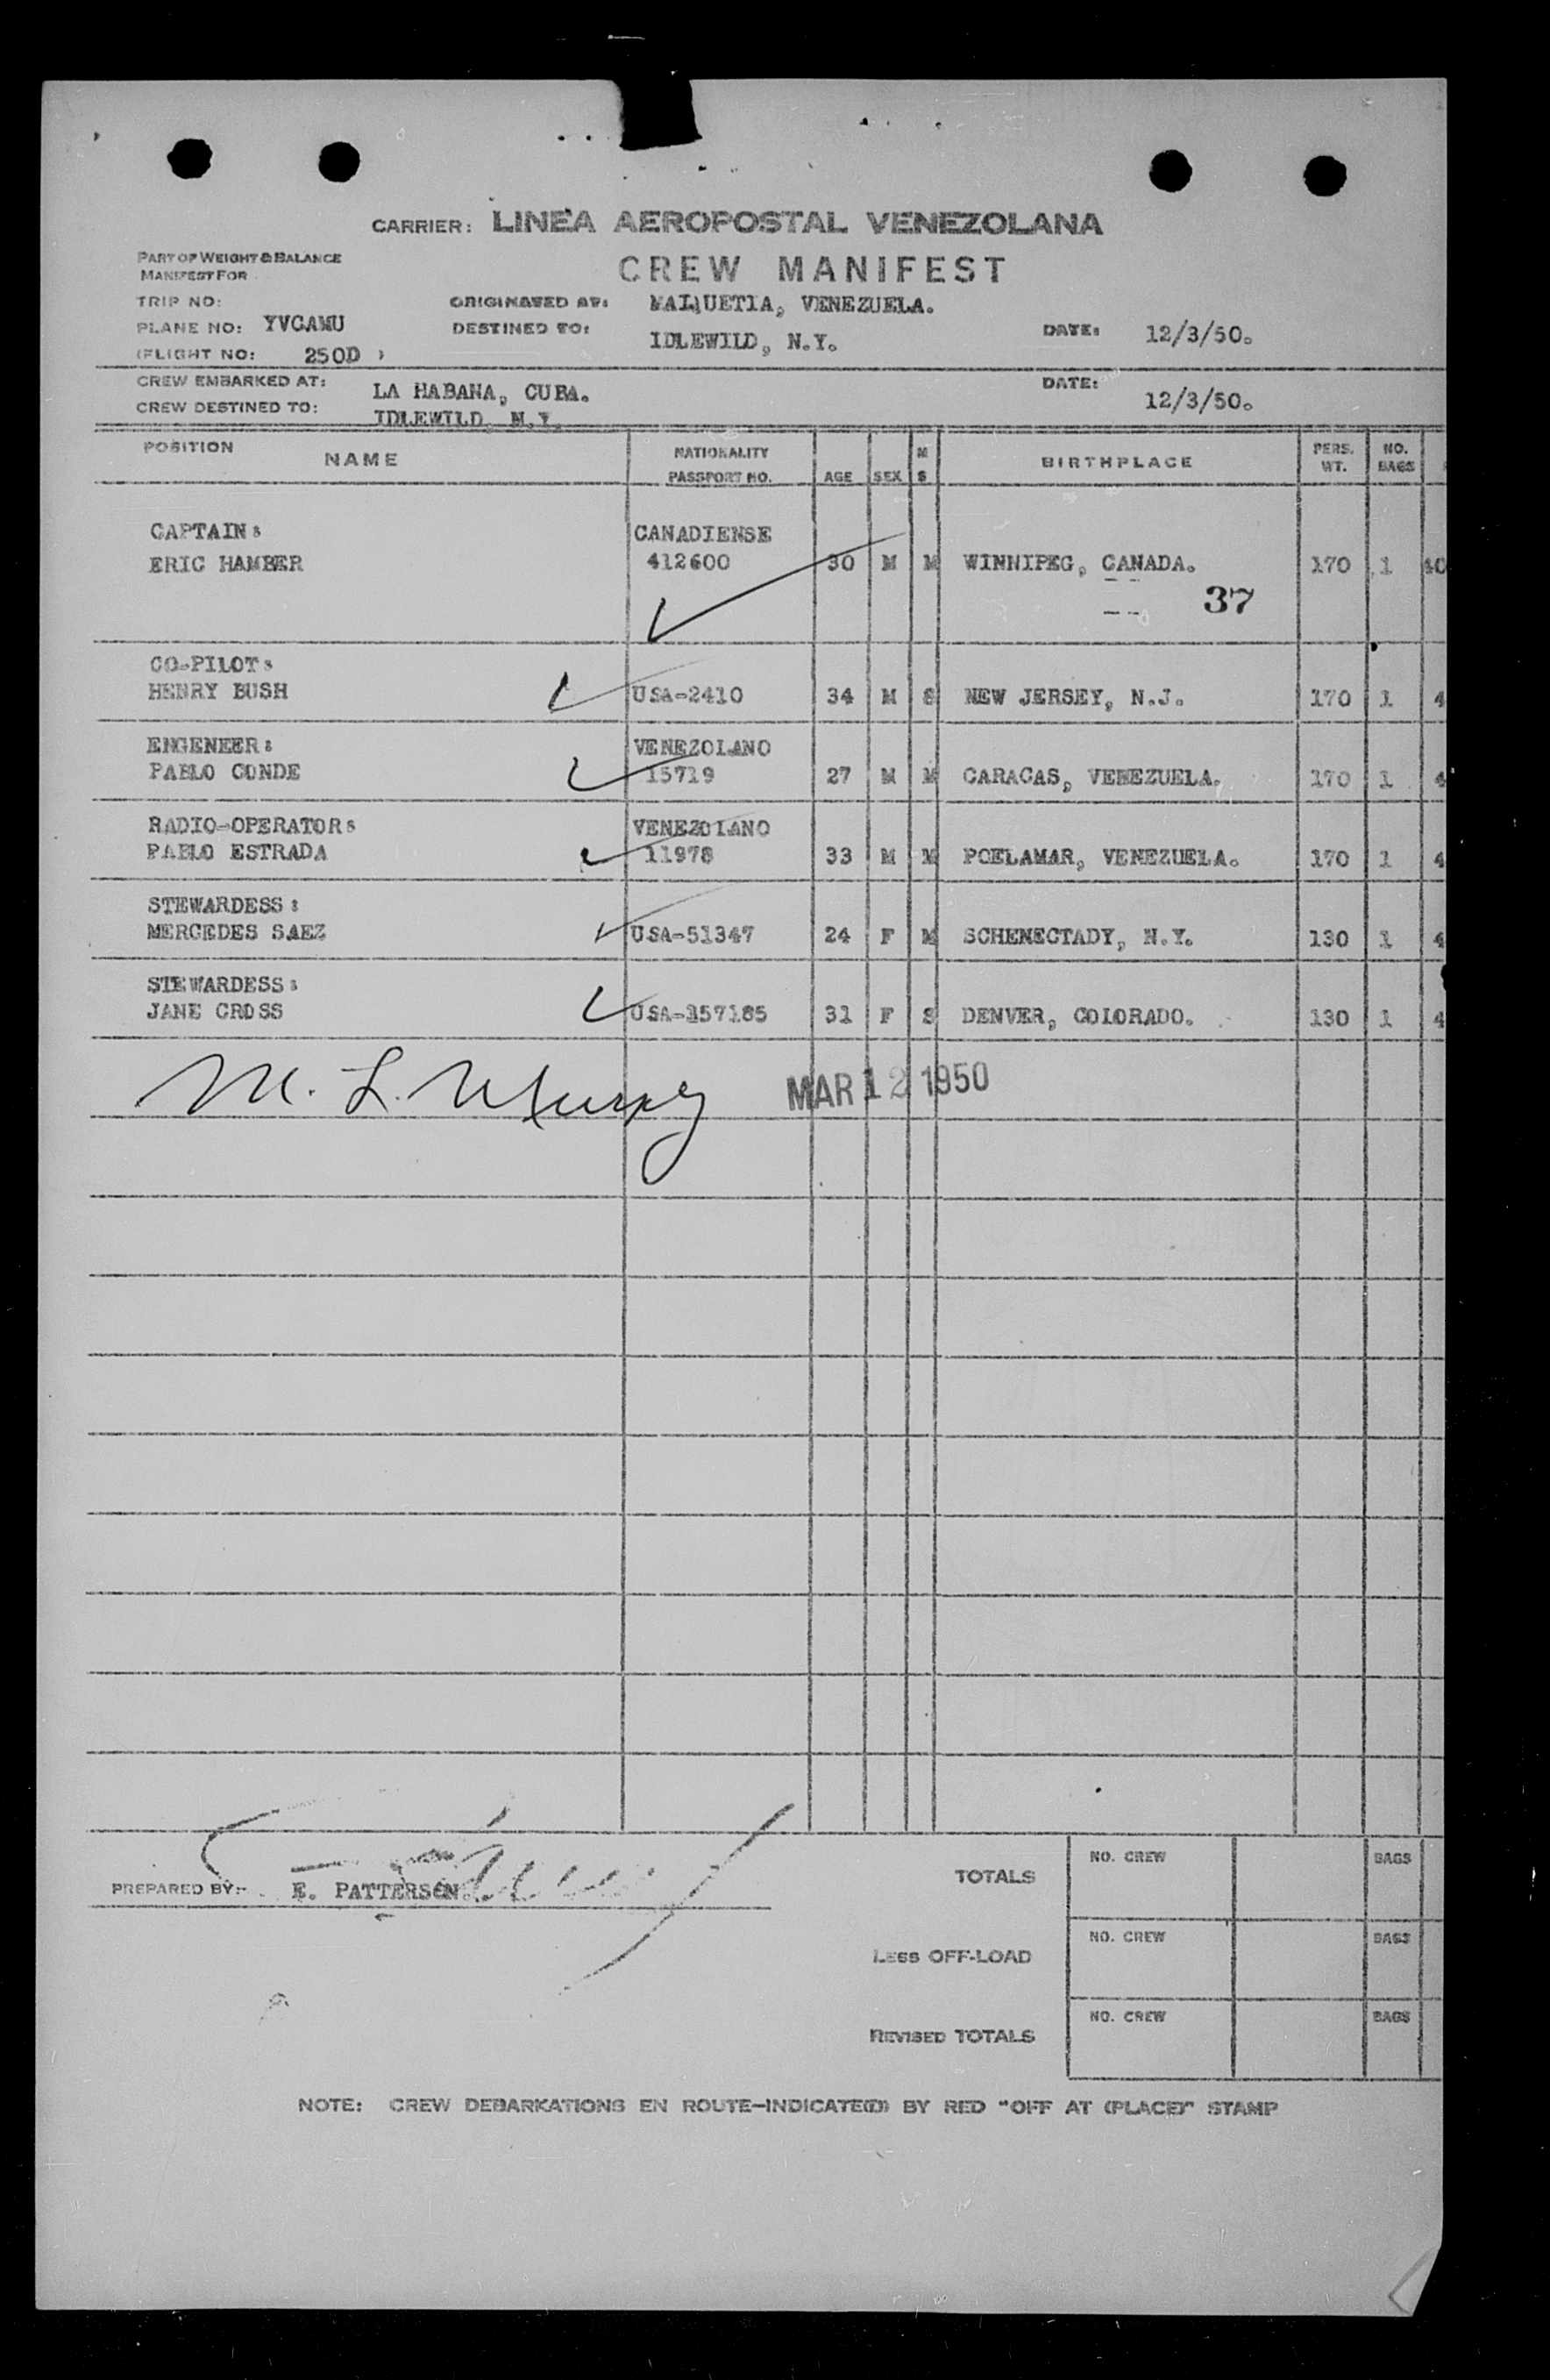 CARRIER: LINEA AEROPOSTAL VENEZOLANA
PART OF WEIGHT & BALANCE
MANIFEST FOR
CREW MANIFEST
TRIP NO: ORIGINATED AT: MAIQUETIA, VENEZUELA.
PLANE NO: YVCAMU DESTINED TO: IDLEWILD, N.Y. DATE: 12/3/50.
(FLIGHT NO: 250D )
CREW EMBARKED AT: LA HABANA, CUBA. DATE: 12/3/50.
CREW DESTINED TO: IDLEWILD, N.Y.
POSITION NAME NATIONALITY PASSPORT NO. AGE SEX M S BIRTHPLACE PERS. WT. NO. BAGS
CAPTAIN: CANADIENSE
ERIC HAMBER 412600 30 M M WINNIPEG, CANADA. 170 1 40
37
CO-PILOT:
HENRY BUSH USA-2410 34 M S NEW JERSEY, N.J. 170 1 4
ENGENEER: VENEZOLANO
PABLO CONDE 15719 27 M M CARACAS, VENEZUELA. 170 1 4
RADIO-OPERATOR: VENEZOLANO
PABLO ESTRADA 11978 33 M M POELAMAR, VENEZUELA. 170 1 4
STEWARDESS:
MERCEDES SAEZ USA-51347 24 F M SCHENECTADY, N.Y. 130 1 4
STEWARDESS:
JANE CROSS USA-157185 31 F S DENVER, COLORADO. 130 1 4
M. L. MAR 12 1950
PREPARED BY:- E. PATTERSON.
TOTALS NO. CREW BAGS
LESS OFF-LOAD NO. CREW BAGS
REVISED TOTALS NO. CREW BAGS
NOTE: CREW DEBARKATIONS EN ROUTE-INDICATE(D) BY RED "OFF AT (PLACE)" STAMP